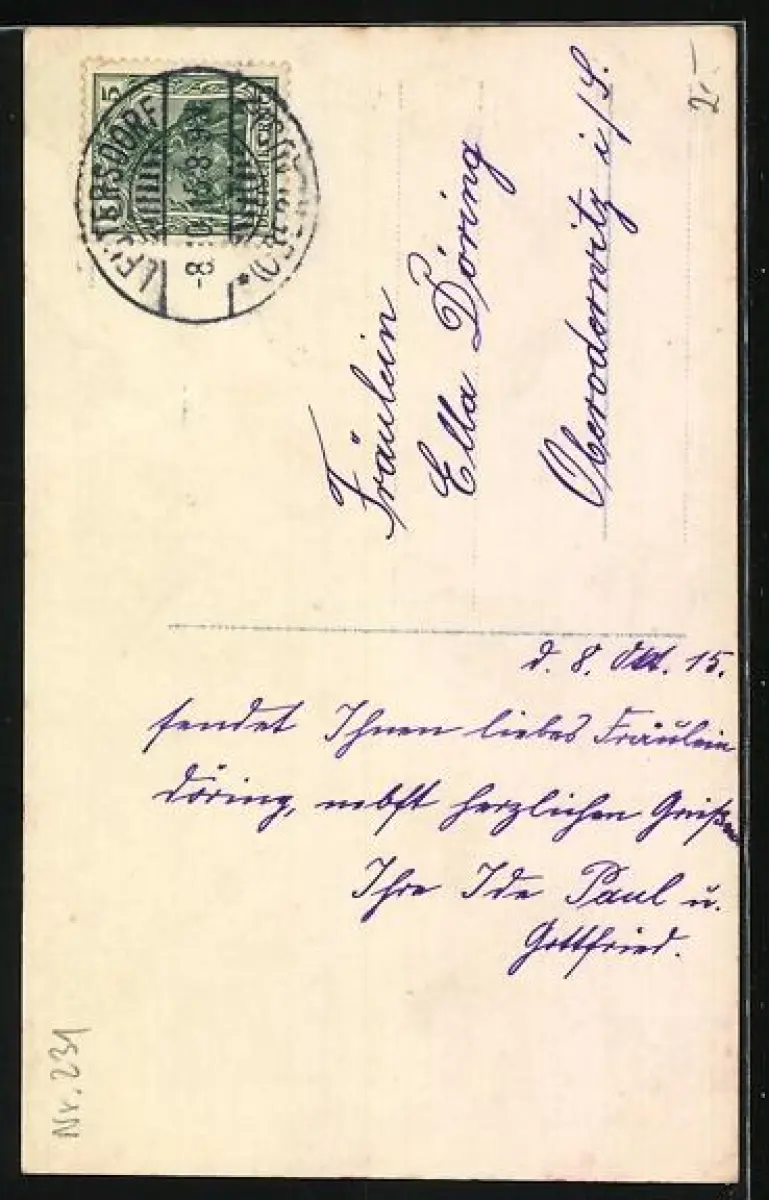 5
LEUTERSDORF
-8.10.15.8-9V.
2.-
Fräulein
Ella Döring
Oberoderwitz i/S.
d. 8. Okt. 15.
sendet Ihnen liebes Fräulein
Döring, nebst herzlichen Grüßen
Ihre Ida Paul u.
Gottfried.
Nr. 231